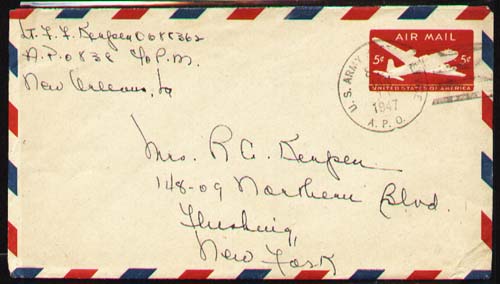 Lt. F. F. Kempen 0688362
A.P.O 838 c/o P.M.
New Orleans, La
AIR MAIL
5¢ 5¢
UNITED STATES OF AMERICA
U.S. ARMY
1947
A.P.O.
Mrs. R C. Kempen
148-09 Northern Blvd.
Flushing,
New York